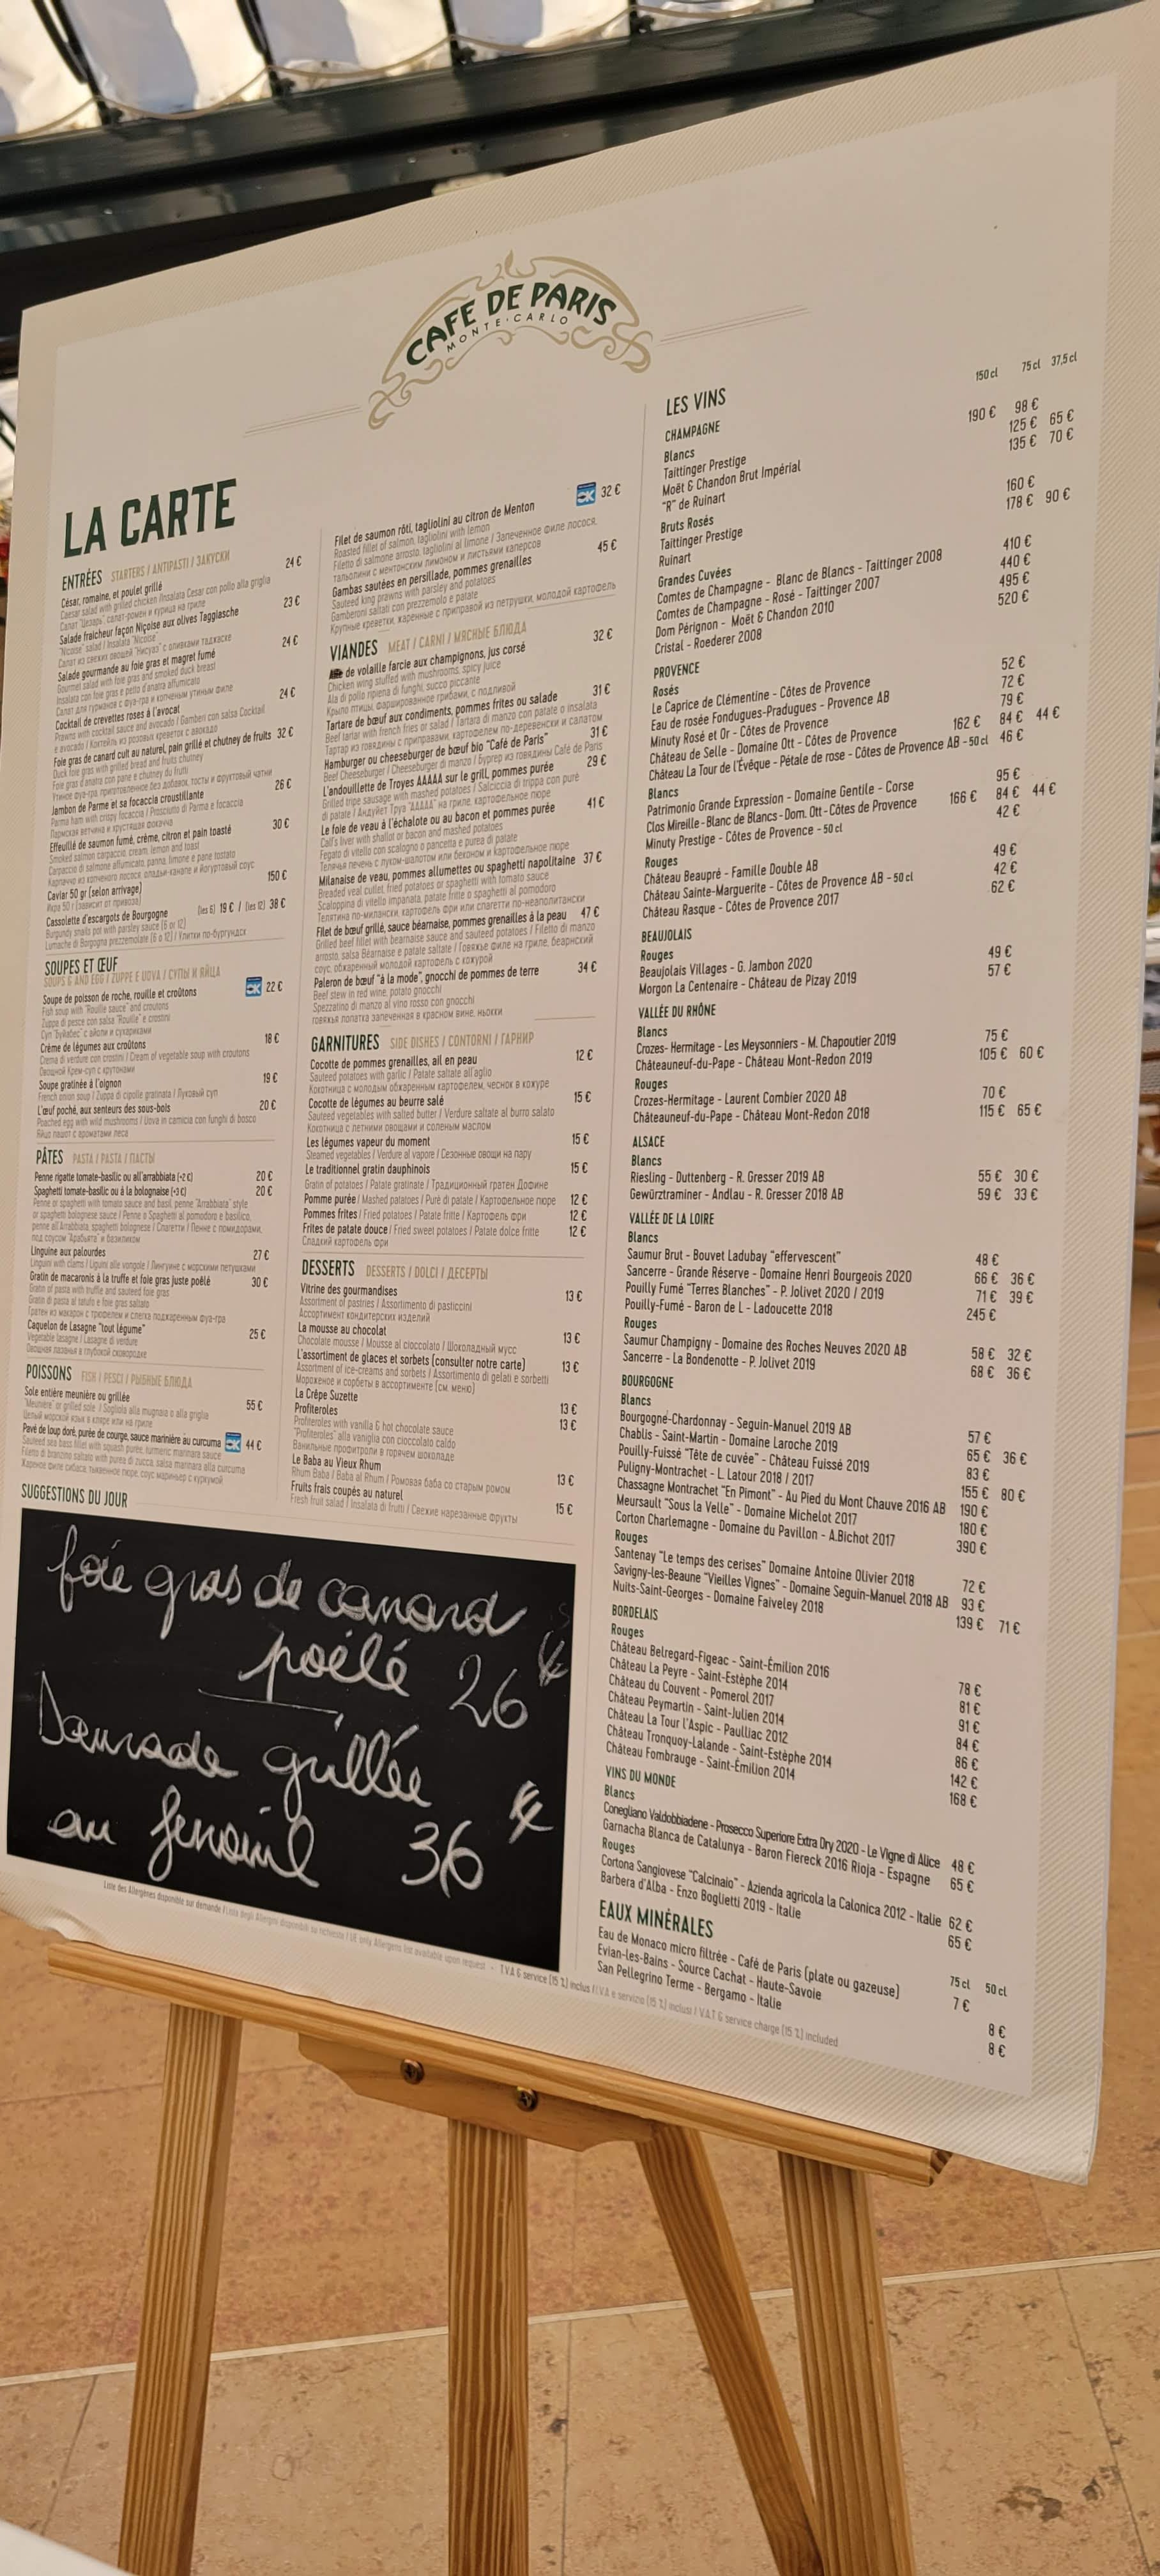 CAFE DE PARIS
MONTE-CARLO
LA CARTE
ENTRÉES STARTERS / ANTIPASTI / ЗАКУСКИ
César, romaine, et poulet grillé 24 €
Caesar salad with grilled chicken /Insalata Cesar con pollo alla griglia
Салат "Цезарь", салат-ромен и курица на гриле
Salade fraicheur façon Niçoise aux olives Taggiasche 23 €
"Nicoise" salad / Insalata "Nicoise"
Салат из свежих овощей "Нисуаз" с оливками таджаске
Salade gourmande au foie gras et magret fumé 24 €
Gourmet salad with foie gras and smoked duck breast
Insalata con foie gras e petto d'anatra affumicato
Салат для гурманов с фуа-гра и копченым утиным филе
Cocktail de crevettes roses à l'avocat 24 €
Prawns with cocktail sauce and avocado / Gamberi con salsa Cocktail
e avocado / Коктейль из розовых креветок с авокадо
Foie gras de canard cuit au naturel, pain grillé et chutney de fruits 32 €
Duck foie gras with grilled bread and fruits chutney
Foie gras d'anatra con pane e chutney du frutti
Утиное фуа-гра, приготовленное без добавок, тосты и фруктовый чатни
Jambon de Parme et sa focaccia croustillante 26 €
Parma ham with crispy focaccia / Prosciutto di Parma e focaccia
Пармская ветчина и хрустящая фокачча
Effeuillé de saumon fumé, crème, citron et pain toasté 30 €
Smoked salmon carpaccio, cream, lemon and toast
Carpaccio di salmone affumicato, panna, limone e pane tostato
Карпаччо из копченого лосося, оладьи-канапе и йогуртовый соус
Caviar 50 gr (selon arrivage) 150 €
Икра 50 г (зависит от привоза)
Cassolette d'escargots de Bourgogne (les 6) 19 € / (les 12) 38 €
Burgundy snails pot with parsley sauce (6 or 12)
Lumache di Borgogna prezzemolate (6 o 12) / Улитки по-бургундск
SOUPES ET ŒUF
SOUPS & AND EGG / ZUPPE E UOVA / СУПЫ И ЯЙЦА
Soupe de poisson de roche, rouille et croûtons 22 €
Fish soup with "Rouille sauce" and croutons
Zuppa di pesce con salsa "Rouille" e crostini
Суп "Буйабес" с айоли и сухариками
Crème de légumes aux croûtons 18 €
Crema di verdure con crostini / Cream of vegetable soup with croutons
Овощной Крем-суп с крутонами
Soupe gratinée à l'oignon 19 €
French onion soup / Zuppa di cipolle gratinata / Луковый суп
L'œuf poché, aux senteurs des sous-bois 20 €
Poached egg with wild mushrooms / Uova in camicia con funghi di bosco
Яйцо пашот с ароматами леса
PÂTES PASTA / PASTA / ПАСТЫ
Penne rigatte tomate-basilic ou all'arrabbiata (+2 €) 20 €
Spaghetti tomate-basilic ou à la bolognaise (+3 €) 20 €
Penne or spaghetti with tomato sauce and basil, penne "Arrabbiata" style
or spaghetti bolognese sauce / Penne o Spaghetti al pomodoro e basilico,
penne all'Arrabbiata, spaghetti bolognese / Спагетти / Пенне с помидорами,
под соусом "Арабьята" и базиликом
Linguine aux palourdes 27 €
Linguini with clams / Liguini alle vongole / Лингуине с морскими петушками
Gratin de macaronis à la truffe et foie gras juste poêlé 30 €
Gratin of pasta with truffle and sauteed foie gras
Gratin di pasta al tatufo e foie gras saltato
Гратен из макарон с трюфелем и слегка поджаренным фуа-гра
Caquelon de Lasagne "tout légume" 25 €
Vegetable lasagne / Lasagne di verdure
Овощная лазанья в глубокой сковородке
POISSONS FISH / PESCI / РЫБНЫЕ БЛЮДА
Sole entière meunière ou grillée 55 €
"Meunière" or grilled sole / Sogliola alla mugnaia o alla griglia
Целый морской язык в кляре или на гриле
Pavé de loup doré, purée de courge, sauce marinière au curcuma 44 €
Sauteed sea bass fillet with squash purée, turmeric marinara sauce
Filetto di branzino saltato with purea di zucca, salsa marinara alla curcuma
Жареное филе сибаса, тыквенное пюре, соус мариньер с куркумой
SUGGESTIONS DU JOUR
foie gras de canard
poêlé 26 €
Daurade grillée
au fenouil 36 €
Filet de saumon rôti, tagliolini au citron de Menton 32 €
Roasted fillet of salmon, tagliolini with lemon
Filetto di salmone arrosto, tagliolini al limone / Запеченное филе лосося,
тальолини с ментонским лимоном и листьями каперсов
Gambas sautées en persillade, pommes grenailles 45 €
Sauteed king prawns with parsley and potatoes
Gamberoni saltati con prezzemolo e patate
Крупные креветки, жаренные с приправой из петрушки, молодой картофель
VIANDES MEAT / CARNI / МЯСНЫЕ БЛЮДА
de volaille farcie aux champignons, jus corsé 32 €
Chicken wing stuffed with mushrooms, spicy juice
Ala di pollo ripiena di funghi, succo piccante
Крыло птицы, фаршированное грибами, с подливой
Tartare de bœuf aux condiments, pommes frites ou salade 31 €
Beef tartar with french fries or salad / Tartara di manzo con patate o insalata
Тартар из говядины с приправами, картофелем по-деревенски и салатом
Hamburger ou cheeseburger de bœuf bio "Café de Paris" 31 €
Beef Cheeseburger / Cheeseburger di manzo / Бургер из говядины Café de Paris
L'andouillette de Troyes AAAAA sur le grill, pommes purée 29 €
Grilled tripe sausage with mashed potatoes / Salciccia di trippa con puré
di patate / Андуйет Труа "AAAAA" на гриле, картофельное пюре
Le foie de veau à l'échalote ou au bacon et pommes purée 41 €
Calf's liver with shallot or bacon and mashed potatoes
Fegato di vitello con scalogno o pancetta e purea di patate
Телячья печень с луком-шалотом или беконом и картофельное пюре
Milanaise de veau, pommes allumettes ou spaghetti napolitaine 37 €
Breaded veal cutlet, fried potatoes or spaghetti with tomato sauce
Scaloppina di vitello impanata, patate fritte o spaghetti al pomodoro
Телятина по-милански, картофель фри или спагетти по-неаполитански
Filet de bœuf grillé, sauce béarnaise, pommes grenailles à la peau 47 €
Grilled beef fillet with bearnaise sauce and sauteed potatoes / Filetto di manzo
arrosto, salsa Béarnaise e patate saltate / Говяжье филе на гриле, беарнский
соус, обжаренный молодой картофель с кожурой
Paleron de bœuf "à la mode", gnocchi de pommes de terre 34 €
Beef stew in red wine, potato gnocchi
Spezzatino di manzo al vino rosso con gnocchi
говяжья лопатка запеченная в красном вине, ньокки
GARNITURES SIDE DISHES / CONTORNI / ГАРНИР
Cocotte de pommes grenailles, ail en peau 12 €
Sauteed potatoes with garlic / Patate saltate all'aglio
Кокотница с молодым обжаренным картофелем, чеснок в кожуре
Cocotte de légumes au beurre salé 15 €
Sauteed vegetables with salted butter / Verdure saltate al burro salato
Кокотница с летними овощами и соленым маслом
Les légumes vapeur du moment 15 €
Steamed vegetables / Verdure al vapore / Сезонные овощи на пару
Le traditionnel gratin dauphinois 15 €
Gratin of potatoes / Patate gratinate / Традиционный гратен Дофине
Pomme purée / Mashed potatoes / Puré di patate / Картофельное пюре 12 €
Pommes frites / Fried potatoes / Patate fritte / Картофель фри 12 €
Frites de patate douce / Fried sweet potatoes / Patate dolce fritte 12 €
Сладкий картофель фри
DESSERTS DESSERTS / DOLCI / ДЕСЕРТЫ
Vitrine des gourmandises 13 €
Assortment of pastries / Assortimento di pasticcini
Ассортимент кондитерских изделий
La mousse au chocolat 13 €
Chocolate mousse / Mousse al cioccolato / Шоколадный мусс
L'assortiment de glaces et sorbets (consulter notre carte) 13 €
Assortment of ice-creams and sorbets / Assortimento di gelati e sorbetti
Мороженое и сорбеты в ассортименте (см. меню)
La Crêpe Suzette 13 €
Profiteroles 13 €
Profiteroles with vanilla & hot chocolate sauce
"Profiteroles" alla vaniglia con cioccolato caldo
Ванильные профитроли в горячем шоколаде
Le Baba au Vieux Rhum 13 €
Rhum Baba / Baba al Rhum / Ромовая баба со старым ромом
Fruits frais coupés au naturel 15 €
Fresh fruit salad / Insalata di frutti / Свежие нарезанные фрукты
LES VINS 150 cl 75 cl 37,5 cl
CHAMPAGNE
Blancs
Taittinger Prestige 190 € 98 €
Moët & Chandon Brut Impérial 125 € 65 €
"R" de Ruinart 135 € 70 €
Bruts Rosés
Taittinger Prestige 160 €
Ruinart 178 € 90 €
Grandes Cuvées
Comtes de Champagne - Blanc de Blancs - Taittinger 2008 410 €
Comtes de Champagne - Rosé - Taittinger 2007 440 €
Dom Pérignon - Moët & Chandon 2010 495 €
Cristal - Roederer 2008 520 €
PROVENCE
Rosés
Le Caprice de Clémentine - Côtes de Provence 52 €
Eau de rosée Fondugues-Pradugues - Provence AB 72 €
Minuty Rosé et Or - Côtes de Provence 79 €
Château de Selle - Domaine Ott - Côtes de Provence 162 € 84 € 44 €
Château La Tour de l'Évêque - Pétale de rose - Côtes de Provence AB - 50 cl 46 €
Blancs
Patrimonio Grande Expression - Domaine Gentile - Corse 95 €
Clos Mireille - Blanc de Blancs - Dom. Ott - Côtes de Provence 166 € 84 € 44 €
Minuty Prestige - Côtes de Provence - 50 cl 42 €
Rouges
Château Beaupré - Famille Double AB 49 €
Château Sainte-Marguerite - Côtes de Provence AB - 50 cl 42 €
Château Rasque - Côtes de Provence 2017 62 €
BEAUJOLAIS
Rouges
Beaujolais Villages - G. Jambon 2020 49 €
Morgon La Centenaire - Château de Pizay 2019 57 €
VALLÉE DU RHÔNE
Blancs
Crozes- Hermitage - Les Meysonniers - M. Chapoutier 2019 75 €
Châteauneuf-du-Pape - Château Mont-Redon 2019 105 € 60 €
Rouges
Crozes-Hermitage - Laurent Combier 2020 AB 70 €
Châteauneuf-du-Pape - Château Mont-Redon 2018 115 € 65 €
ALSACE
Blancs
Riesling - Duttenberg - R. Gresser 2019 AB 55 € 30 €
Gewürztraminer - Andlau - R. Gresser 2018 AB 59 € 33 €
VALLÉE DE LA LOIRE
Blancs
Saumur Brut - Bouvet Ladubay "effervescent" 48 €
Sancerre - Grande Réserve - Domaine Henri Bourgeois 2020 66 € 36 €
Pouilly Fumé "Terres Blanches" - P. Jolivet 2020 / 2019 71 € 39 €
Pouilly-Fumé - Baron de L - Ladoucette 2018 245 €
Rouges
Saumur Champigny - Domaine des Roches Neuves 2020 AB 58 € 32 €
Sancerre - La Bondenotte - P. Jolivet 2019 68 € 36 €
BOURGOGNE
Blancs
Bourgogne-Chardonnay - Seguin-Manuel 2019 AB 57 €
Chablis - Saint-Martin - Domaine Laroche 2019 65 € 36 €
Pouilly-Fuissé "Tête de cuvée" - Château Fuissé 2019 83 €
Puligny-Montrachet - L. Latour 2018 / 2017 155 € 80 €
Chassagne Montrachet "En Pimont" - Au Pied du Mont Chauve 2016 AB 190 €
Meursault "Sous la Velle" - Domaine Michelot 2017 180 €
Corton Charlemagne - Domaine du Pavillon - A.Bichot 2017 390 €
Rouges
Santenay "Le temps des cerises" Domaine Antoine Olivier 2018 72 €
Savigny-les-Beaune "Vieilles Vignes" - Domaine Seguin-Manuel 2018 AB 93 €
Nuits-Saint-Georges - Domaine Faiveley 2018 139 € 71 €
BORDELAIS
Rouges
Château Belregard-Figeac - Saint-Émilion 2016 78 €
Château La Peyre - Saint-Estèphe 2014 81 €
Château du Couvent - Pomerol 2017 91 €
Château Peymartin - Saint-Julien 2014 84 €
Château La Tour l'Aspic - Paulliac 2012 86 €
Château Tronquoy-Lalande - Saint-Estèphe 2014 142 €
Château Fombrauge - Saint-Émilion 2014 168 €
VINS DU MONDE
Blancs
Conegliano Valdobbiadene - Prosecco Superiore Extra Dry 2020 - Le Vigne di Alice 48 €
Garnacha Blanca de Catalunya - Baron Fiereck 2016 Rioja - Espagne 65 €
Rouges
Cortona Sangiovese "Calcinaio" - Azienda agricola la Calonica 2012 - Italie 62 €
Barbera d'Alba - Enzo Boglietti 2019 - Italie 65 €
EAUX MINÉRALES 75 cl 50 cl
Eau de Monaco micro filtrée - Café de Paris (plate ou gazeuse) 7 €
Evian-les-Bains - Source Cachat - Haute-Savoie 8 €
San Pellegrino Terme - Bergamo - Italie 8 €
Liste des Allergènes disponible sur demande / Lista degli Allergeni disponibili su richiesta / UE only Allergens list available upon request - T.V.A & service (15 %) inclus / I.V.A e servizio (15 %) inclusi / V.A.T & service charge (15 %) included